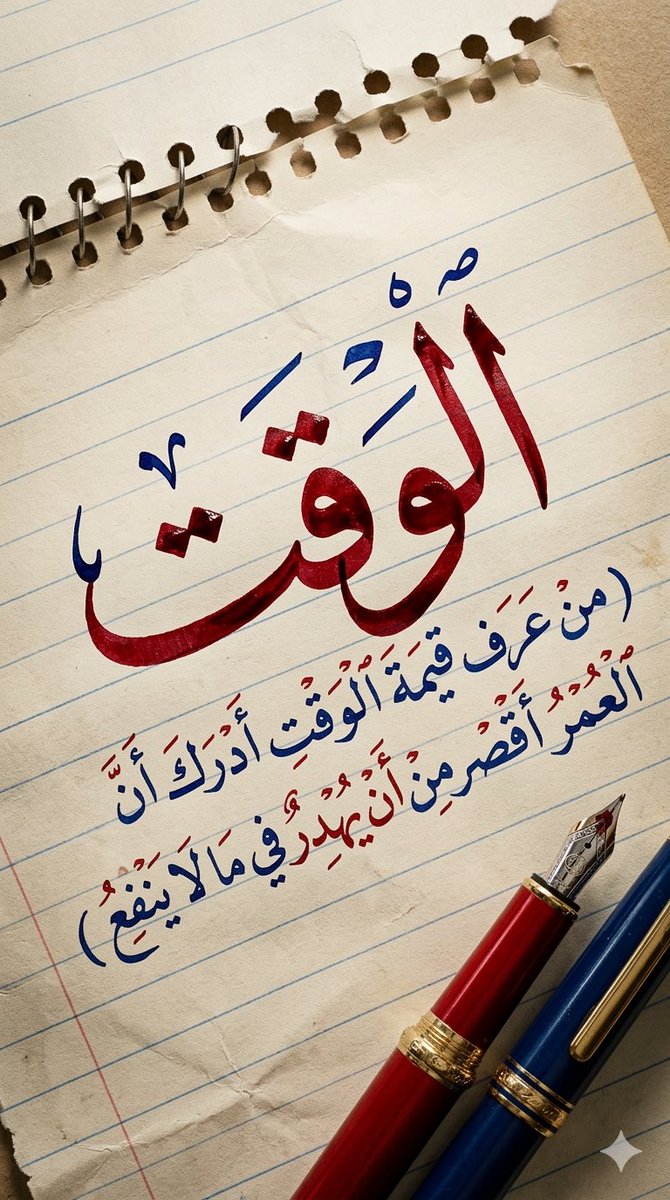 الْوَقْت
(منْ عَرَف قيمَةَ الْوَقْتِ أَدْرَكَ أَنَّ
الْعُمْرُ أَقْصْر مِنْ أَنْ يُهْدِرُ في مَا لَا يَنْفَعُ)